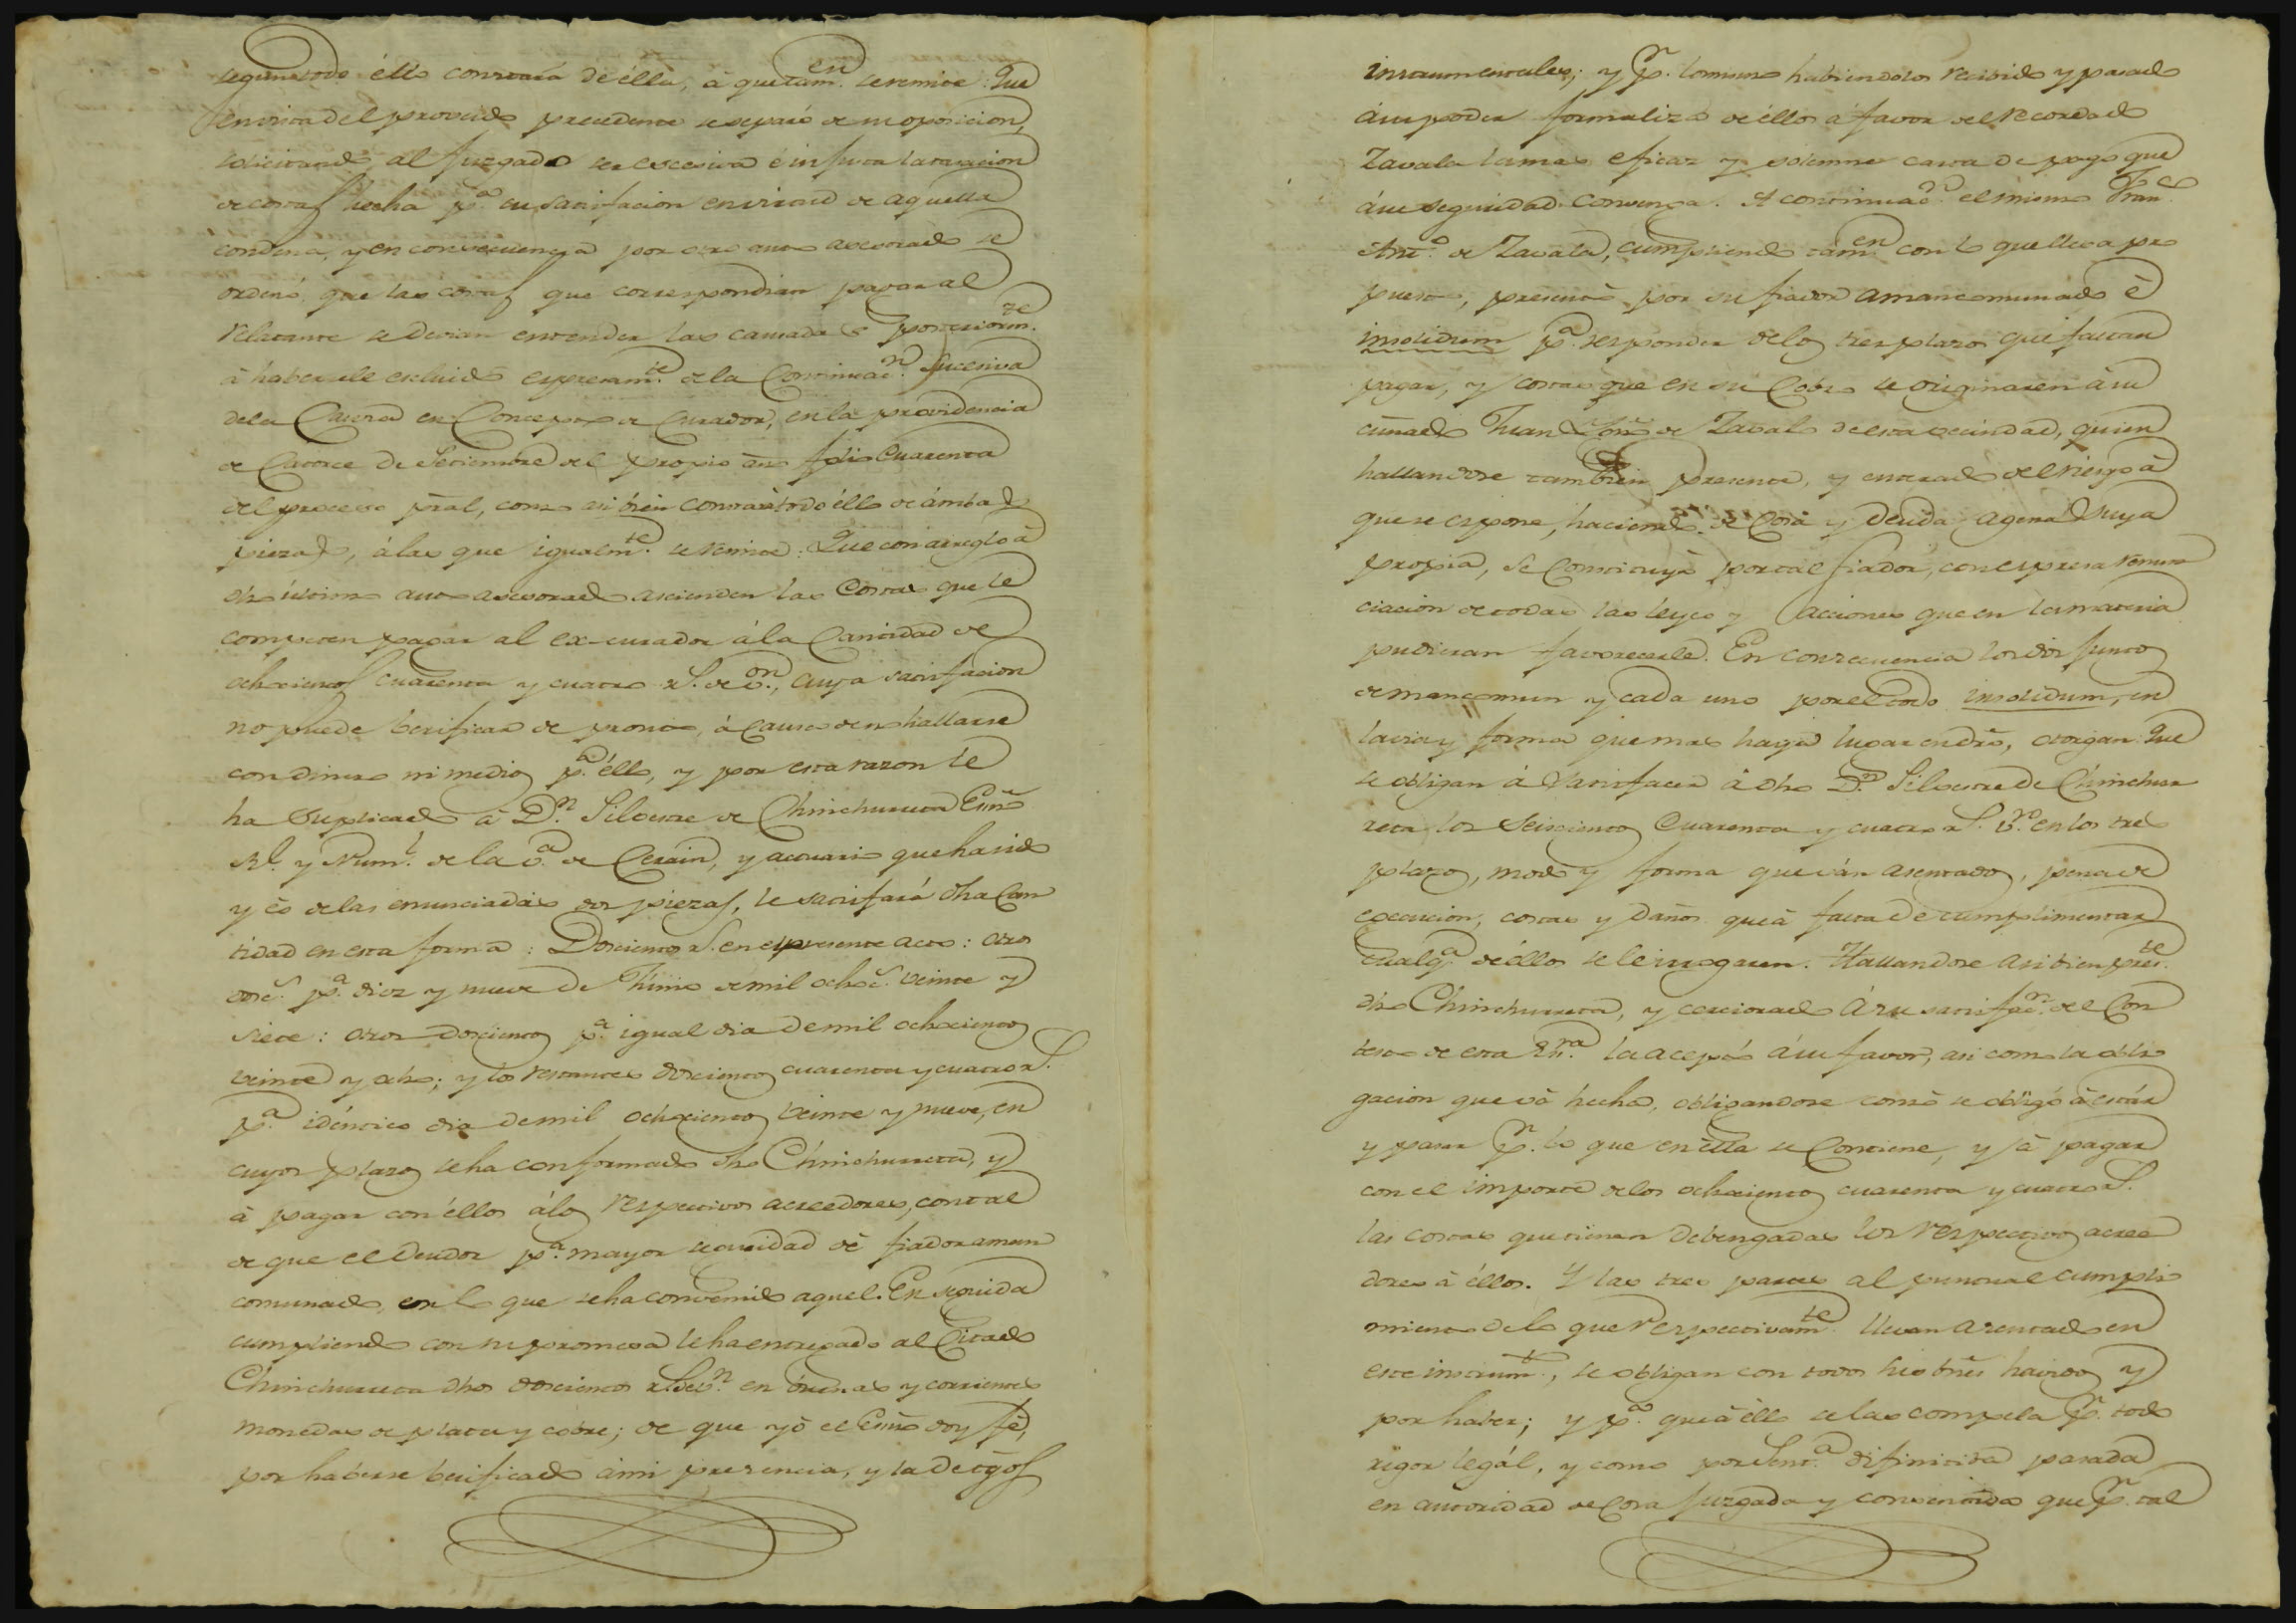 segun todo ello constará de élla, á que tam.en se remite: Que
en vista del proveido precedente se separó de su oposicion,
solicitando al Juzgado ser escesiva é injusta la tasacion
de costas hecha p.a su satisfacion en virtud de aquella
condena, y en consecuencia por otro auto asesorado se
ordenó, que las costas que correspondian pagar al
relatante se devian entender las causadas posteriorm.te
á habersele escluido espresam.te de la Continuac.n sucesiva
dela Causa en Concepto de Curador, en la providencia
de Catorce de Setiembre del propio año folio Cuarenta
del proceso pral, como asi bien constará todo éllo de ámbas
piezas, álas que igualm.te se remite: Que con arreglo á
dho ultimo auto asesorado ascienden las Costas que le
competen pagar al ex-curador á la Cantidad de
ochocientos cuarenta y cuatro r.s de v.on, cuya satisfacion
no puede berificar de pronto, á causa de no hallarse
con dinero ni medios p.a éllo, y por esta razon le
ha Suplicado á D.n Silvestre de Chinchurreta Esno
R.l y Num.l de la v.a de Cerain, y actuario que ha sido
y es de las enunciadas dos piezas, le satisfará dha Can
tidad en esta forma: Doscientos r.s en el presente acto: otros
dosc.s p.a diez y nueve de Junio de mil ochoc.s veinte y
siete: otros doscientos p.a igual dia de mil ochocientos
veinte y ocho; y los restantes doscientos cuarenta y cuatro r.s
p.a idéntico dia de mil ochocientos veinte y nueve, en
cuyos plazos se ha conformado dho Chinchurreta, y
á pagar con éllos álos respectivos acreedores, con tal
de que el Deudor p.a mayor seguridad dé fiador aman
comunado, con lo que se ha convenido aquel. En seguida
cumpliendo con su promesa le ha entregado al Citado
Chinchurreta dhos doscientos r.s de v.n en buenas y corrientes
monedas de plata y cobre; de que yó el Esno doy fé,
por haberse berificado á mi presencia, y la de tgos
instrumentales; y p.r lo mismo habiendolos recivido y pasado
á su poder formaliza de éllos á favor del recordado
Zavala la mas eficaz y solemne carta de pago que
á su seguridad convenga. A continuac.n el mismo Fran.co
Ant.o de Zavala, cumpliendo tam.en con lo que lleva pro
puesto, presentó por su fiador amancomunado é
insolidum p.a responder delos tres plazos que faltan
pagar, y costas que en su Cobro se originaren á su
cuñado Juan de Zavala de esta vecindad, quien
hallandose tambien presente, y enterado del riesgo á
que se espone, haciendo de Cosa y Deuda agena Suya
propia, se Constituyó por tal fiador, con espresa renun
ciacion de todas las leyes y acciones que en la materia
pudieran favorecerle. En consecuencia los dos Juntos
de mancomun y cada uno por el todo insolidum, en
la via y forma que mas haya lugar en dro, otorgan: Que
se obligan á Satisfacer á dho D.n Silvestre de Chinchur
reta los Seiscientos Cuarenta y cuatro r.s v.n en los tres
plazos, modo y forma que ván asentados, pena de
execucion, costas y Daños que á falta de cumplimentar
cualq.a de éllos se le irrogaren. Hallandose asi bien pres.te
dho Chinchurreta, y cerciorado á su satisfac.n del Con
testo de esta Esc.ra la aceptó á su favor, asi como la obli
gacion que vá hecha, obligandose como se obligó á estár
y pasar p.r lo que en élla se Contiene, y á pagar
con el importe delos ochocientos cuarenta y cuatro r.s
las costas que tienen debengadas los respectivos acree
dores á éllos. Y las tres partes al puntual cumpli
miento de lo que respectivam.te llevan asentado en
este instrum.to, se obligan con todos sus bnes havidos y
por haber; y p.a que á éllo se las compela p.r todo
rigor legál, y como por Sent.a difinitiva pasada
en autoridad de Cosa Juzgada y consentida que p.r tal